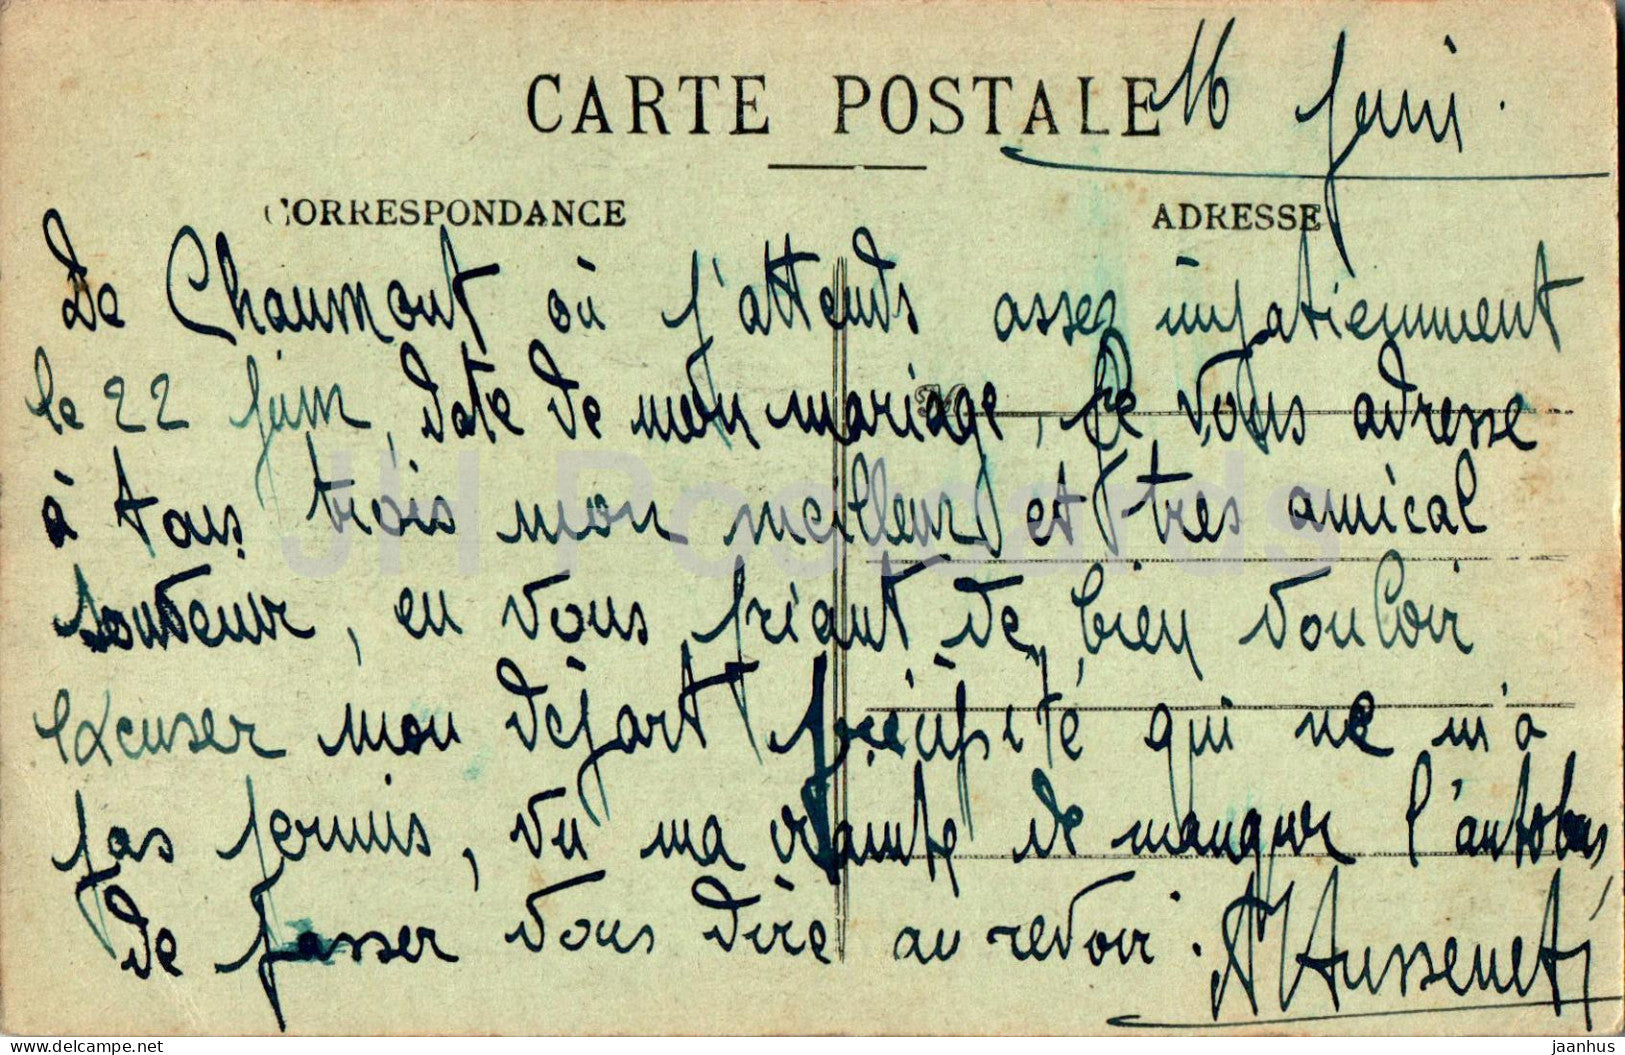 CARTE POSTALE
16 Juin.
CORRESPONDANCE
ADRESSE
De Chaumont où j'attends assez impatiemment
le 22 Juin, date de mon mariage, Je vous adresse
à tous trois mon meilleur et très amical
souvenir, en vous priant de bien vouloir
excuser mon départ précipité qui ne m'a
pas permis, vu ma crainte de manquer l'autobus,
de passer vous dire au revoir.
JH Postcards
delcampe.net
jaanhus